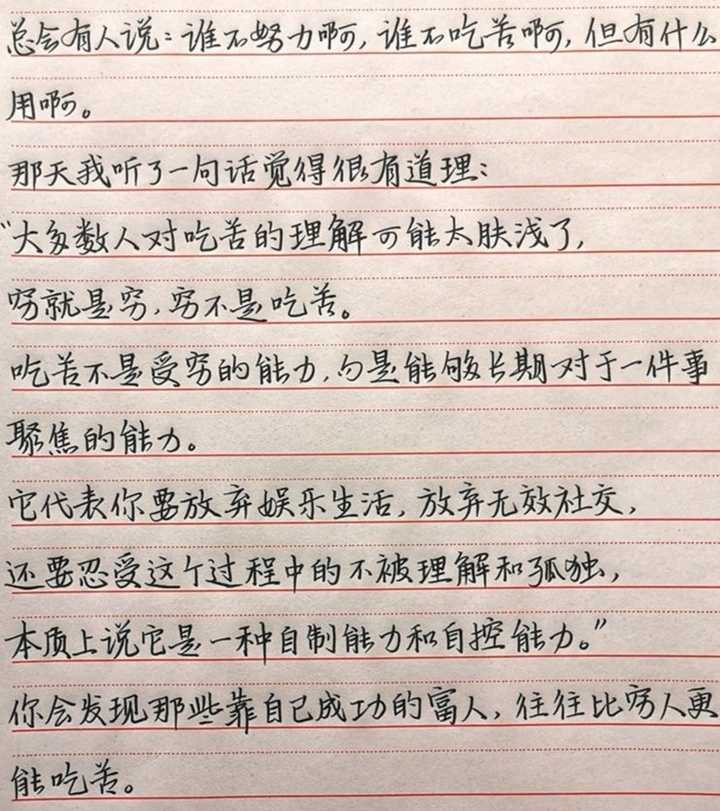 总会有人说：谁不努力啊，谁不吃苦啊，但有什么
用啊。
那天我听了一句话觉得很有道理：
“大多数人对吃苦的理解可能太肤浅了，
穷就是穷，穷不是吃苦。
吃苦不是受穷的能力，而是能够长期对于一件事
聚焦的能力。
它代表你要放弃娱乐生活，放弃无效社交，
还要忍受这个过程中的不被理解和孤独，
本质上说它是一种自制能力和自控能力。”
你会发现那些靠自己成功的富人，往往比穷人更
能吃苦。